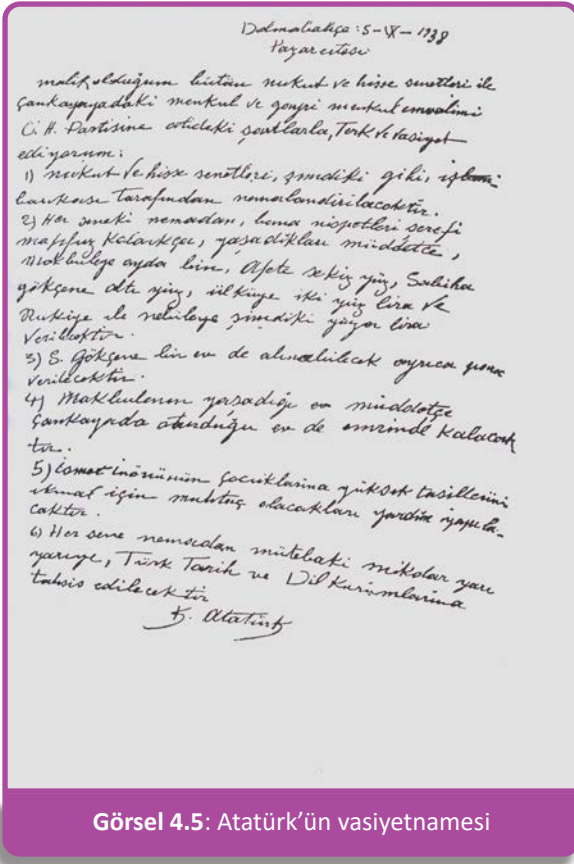 Dolmabahçe: 5-IX-1938
Pazartesi
malik olduğum bütün nukut ve hisse senetleri ile
Çankayadaki menkul ve gayri menkul emvalimi
C. H. Partisine atideki şartlarla, Terk ve Vasiyet
ediyorum:
1) nukut ve hisse senetleri, şimdiki gibi, iş
bankası tarafından nemalandırılacaktır.
2) Her seneki nemadan, bana nispetleri şerefi
mahfuz kaldıkça, yaşadıkları müddetçe,
Makbuleye ayda bin, Afete sekiz yüz, Sabiha
gökçene altı yüz, ülküye iki yüz lira ve
Rukiye ile nebileye şimdiki yüzer lira
verilecektir.
3) S. Gökçene bir ev de alınabilecek ayrıca para
verilecektir.
4) Makbulenin yaşadığı müddetçe
Çankayada oturduğu ev de emrinde kalacak
tır.
5) ismet inönünün çocuklarına yüksek tahsillerini
ikmal için muhtaç olacakları yardım yapıla-
caktır.
6) Her sene nemadan mütebaki miktar yarı
yarıya, Türk Tarih ve Dil Kurumlarına
tahsis edilecektir
K. Atatürk
Görsel 4.5: Atatürk'ün vasiyetnamesi